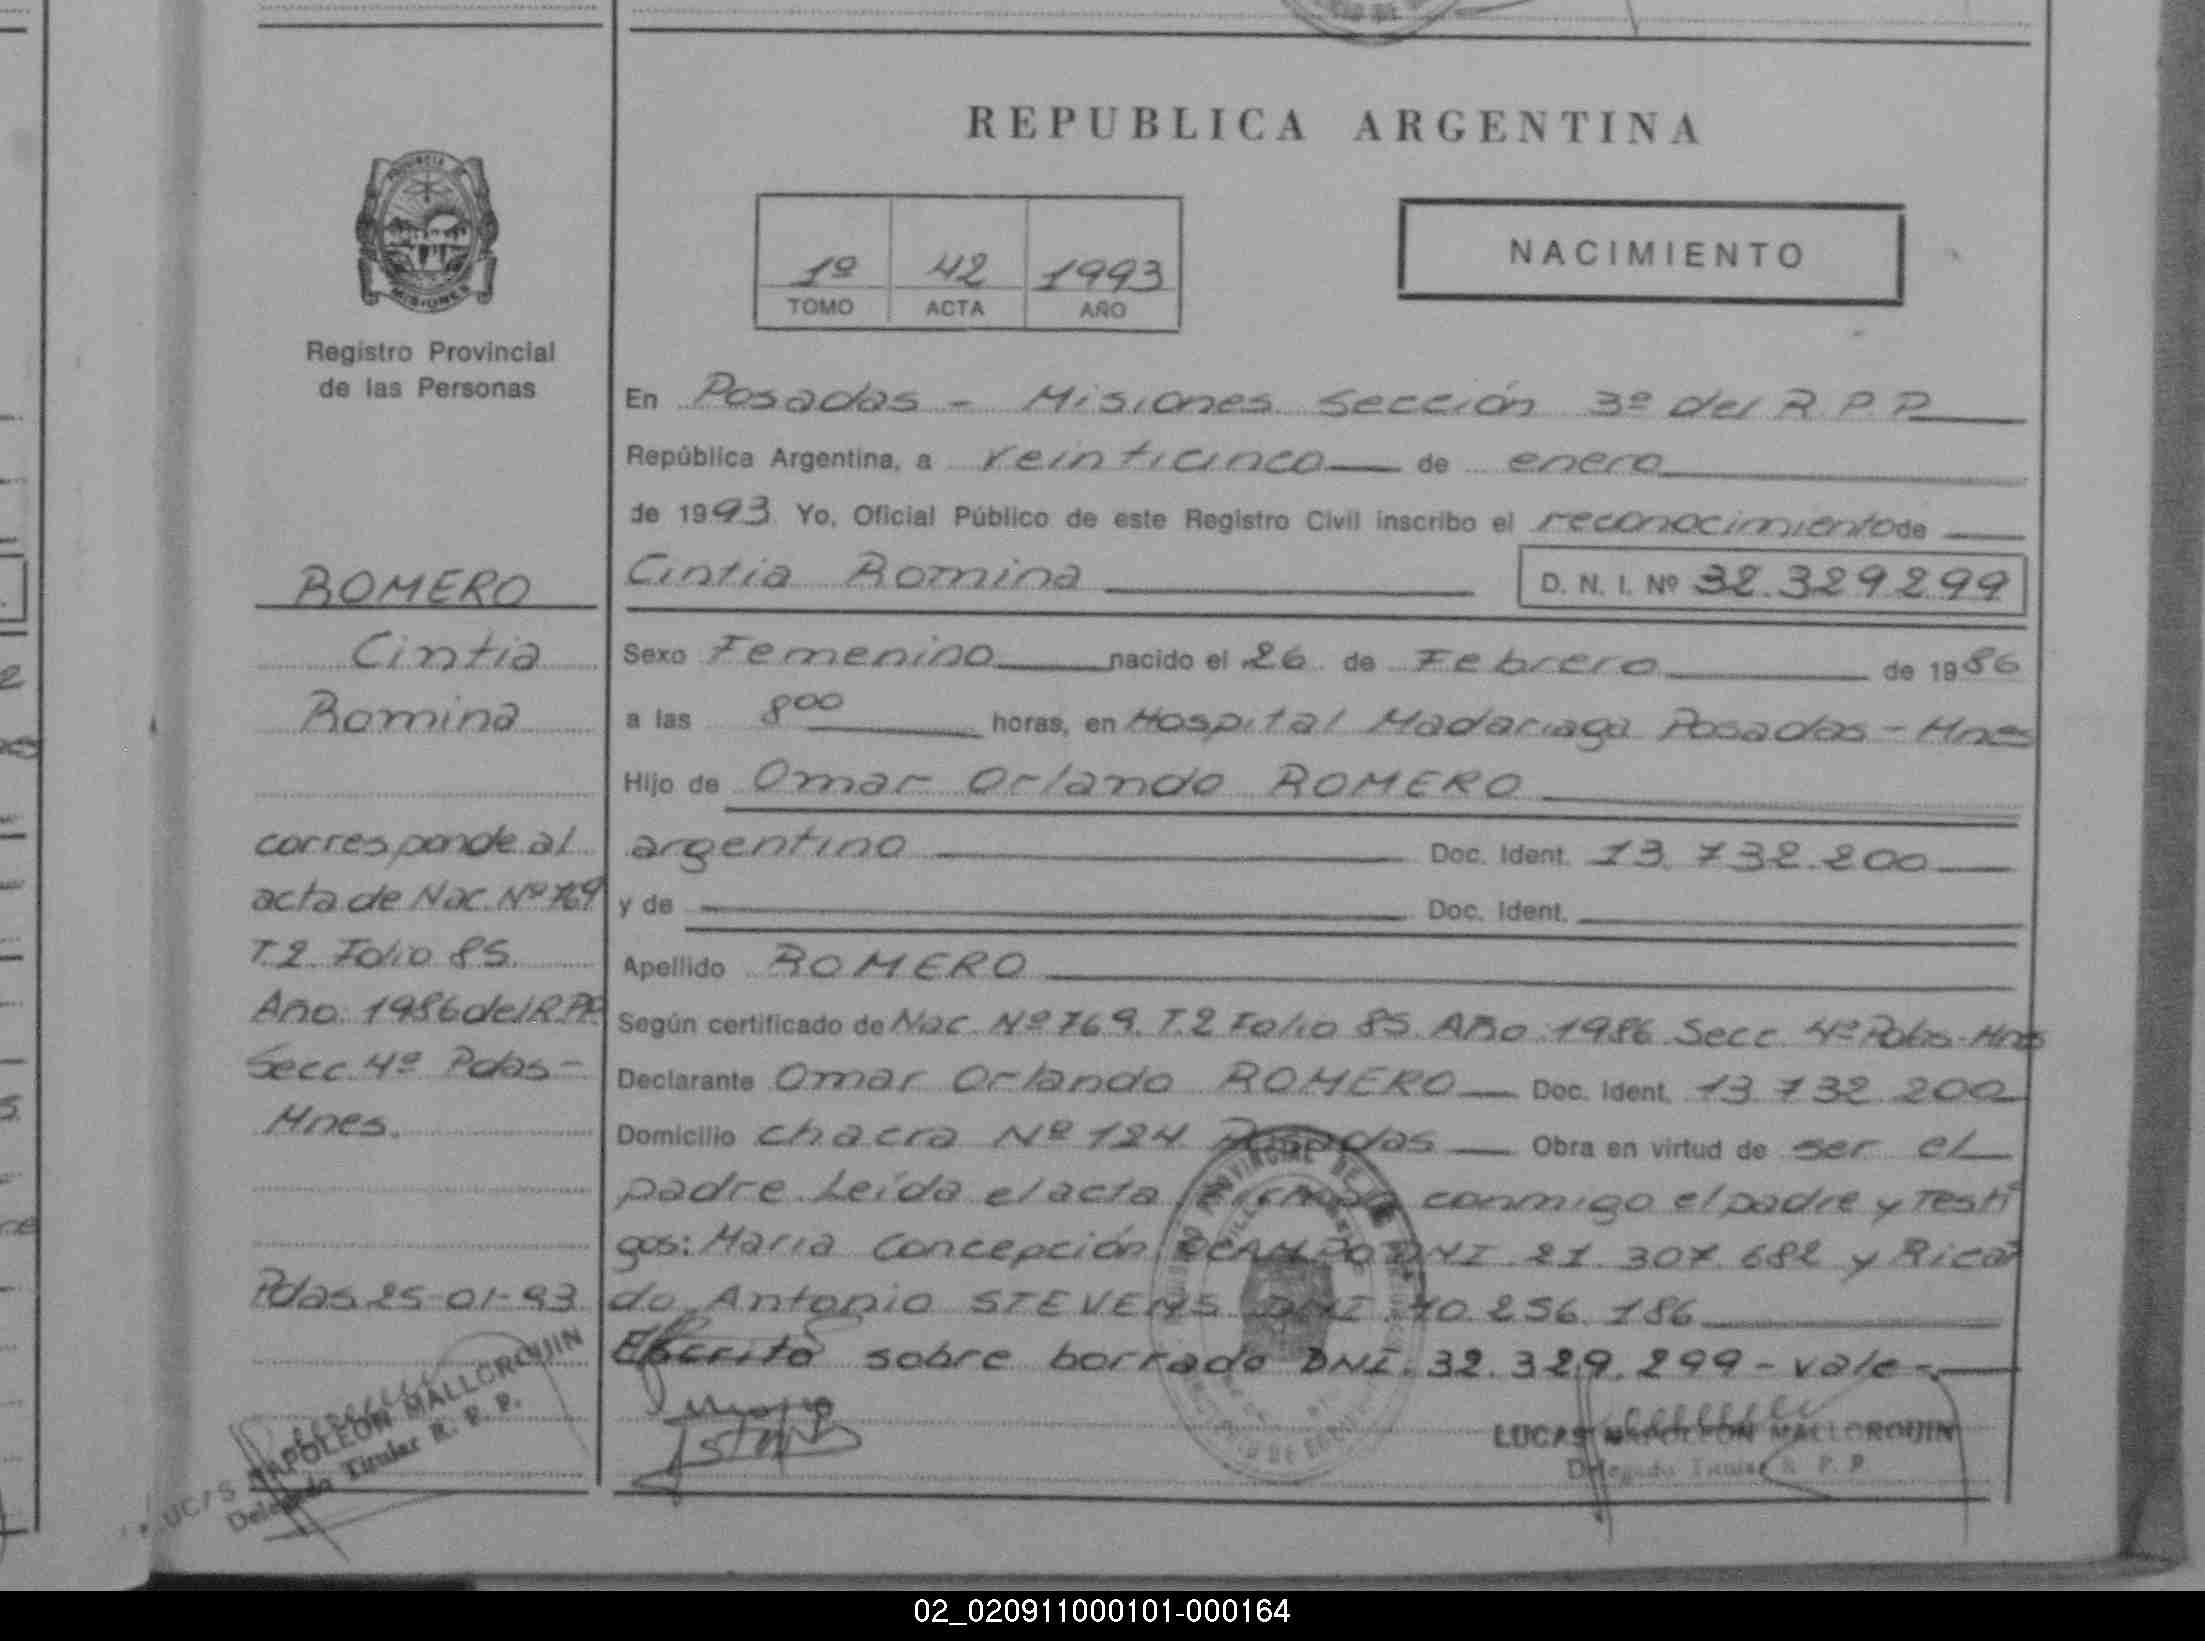 REPUBLICA ARGENTINA
PROVINCIA
MISIONES
Registro Provincial
de las Personas
1º 42 1993
TOMO ACTA AÑO
NACIMIENTO
En Posadas - Misiones Sección 3º del R.P.P.
República Argentina, a veinticinco de enero
de 1993 Yo, Oficial Público de este Registro Civil inscribo el reconocimiento de
Cintia Romina D. N. I. Nº 32.329.299
Sexo Femenino nacido el 26 de Febrero de 1986
a las 8 00 horas, en Hospital Madariaga Posadas - Mnes
Hijo de Omar Orlando ROMERO
argentino Doc. Ident. 13.732.200
y de Doc. Ident.
Apellido ROMERO
Según certificado de Nac. Nº 769. T.2 Folio 85. Año 1986 Secc. 4º Pdas-Mnes
Declarante Omar Orlando ROMERO Doc. Ident. 13.732.200
Domicilio chacra Nº 124 Posadas Obra en virtud de ser el
padre. Leída el acta conmigo el padre y Testi
gos: Maria Concepción DNI 21.307.682 y Ricar
do Antonio STEVENS DNI 256.186
Escrito sobre borrado DNI. 32.329.299 - vale -
LUCAS NAPOLEON MALLORQUIN
Delegado Titular R. P. P.
ROMERO
Cintia
Romina
corresponde al
acta de Nac. Nº 769
T.2 Folio 85.
Año 1986 del R.P.P.
Secc. 4º Pdas-
Mnes.
Pdas 25-01-93
LUCAS NAPOLEON MALLORQUIN
Delegado Titular R. P. P.
02_020911000101-000164